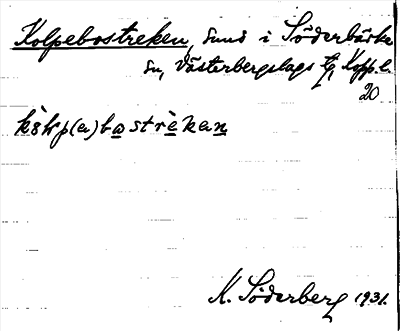 Kolpebostreken, sund i Söderbärke
sn, Västerbergslags tg, Kopp. l.
20
p(a)bostrèkan
K. Söderberg 1931.